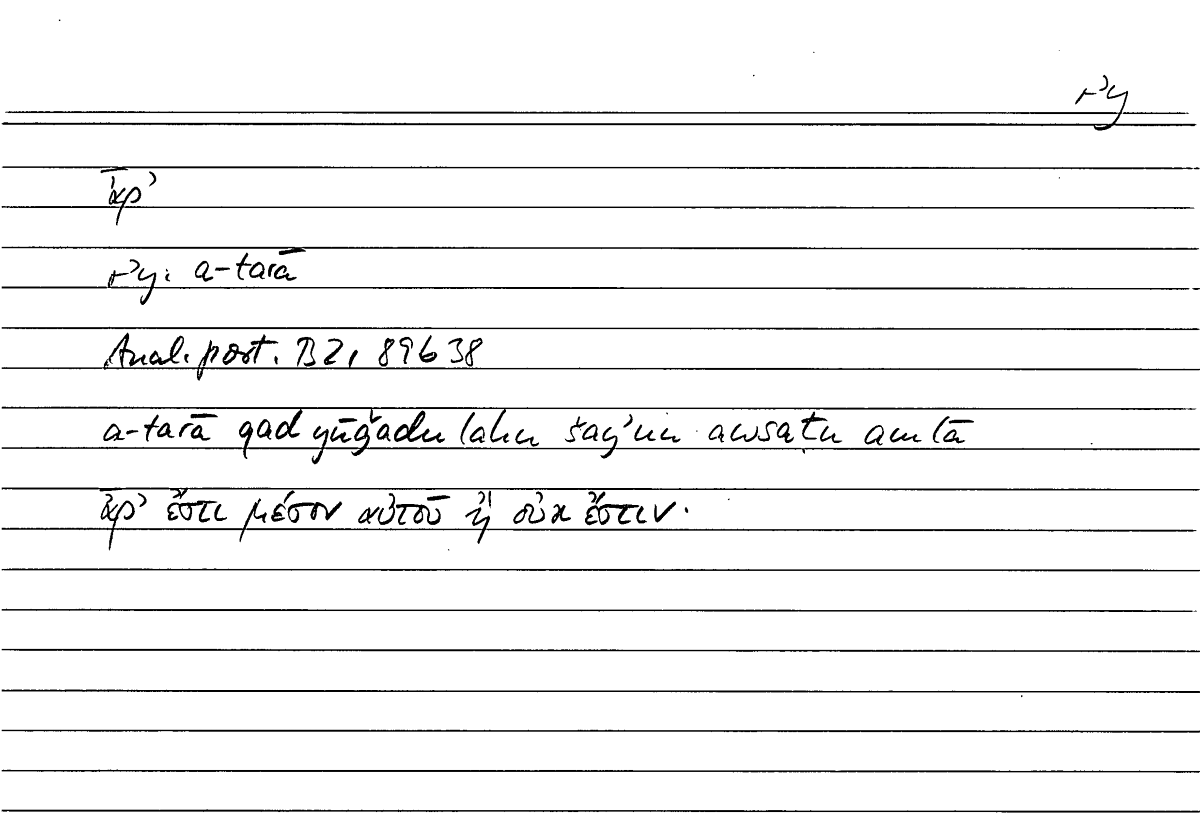 rʾy
ἆρʾ
rʾy: a-tarā
Anal. post. B2, 89b38
a-tarā qad yūǧadu lahu šayʾun awsaṭu am lā
ἆρʾ ἔστι μέσον αὐτοῦ ἢ οὐκ ἔστιν.